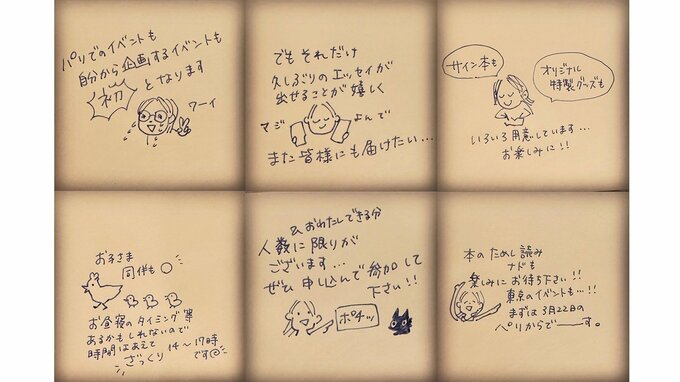 パリでのイベントも
自分から企画するイベントも
初 となります
ワーイ
でもそれだけ
久しぶりのエッセイが
出せることが嬉しく
マジ よんで
また皆様にも届けたい…
サイン本も
オリジナル
特製グッズも
いろいろ用意しています…
お楽しみに!!
お子さま
同伴も〇
お昼寝のタイミング等
あるかもしれないので
時間はあえて
ざっくり 14〜17時
です
&おわたしできる分
人数に限りが
ございます…
ぜひ申し込んで参加して
下さい!!
ポチッ
本のためし読み
ナドも
楽しみにお待ち下さい!!
東京のイベントも…!!
まずは3月22日の
パリからでーーす。